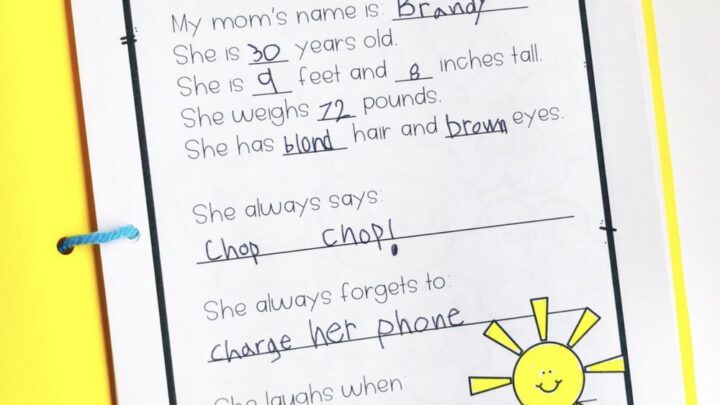 My mom's name is Brandy
She is 30 years old.
She is 9 feet and 8 inches tall.
She weighs 72 pounds.
She has blond hair and brown eyes.
She always says:
Chop chop!
She always forgets to:
charge her phone
She laughs when